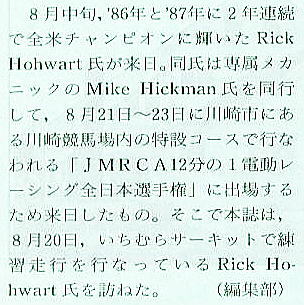 8月中旬,'86年と'87年に2年連続
で全米チャンピオンに輝いたRick
Hohwart氏が来日。同氏は専属メカ
ニックのMike Hickman氏を同行
して，8月21日〜23日に川崎市にあ
る川崎競馬場内の特設コースで行な
われる「JMRCA12分の1電動レ
ーシング全日本選手権」に出場する
ため来日したもの。そこで本誌は，
8月20日，いちむらサーキットで練
習走行を行なっているRick Ho-
hwart氏を訪ねた。　（編集部）